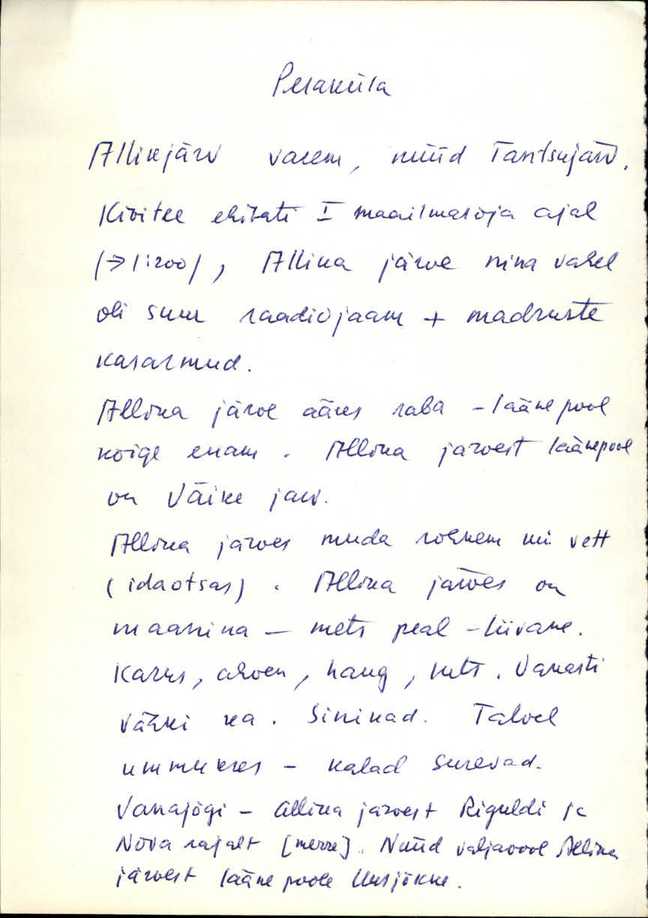 Peraküla
Allikajärv varem, nüüd Tantsujärv.
Kivitee ehitati I maailmasõja ajal
(→ 1:200), Allina järve nina vahel
oli suur raadiojaam + madruste
kasarmud.
Allina järve ääres raba - läänepool
kõige enam. Allina järvest läänepool
on Väike järv.
Allina järves muda rohkem kui vett
(idaotsas). Allina järves on
maanina - mets peal - liivane.
Karus, ahven, haug, . Vanasti
vähki ka. Sininad. Talvel
ummukses - kalad surevad.
Vanajõgi - Allina järvest Riguldi ja
Nõva rajalt [merre]. Nüüd väljavool Allina
järvest lääne poole Uusjõkke.